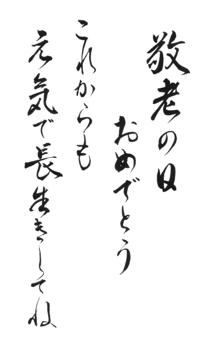 敬老の日
おめでとう
これからも
元気で長生きしてね